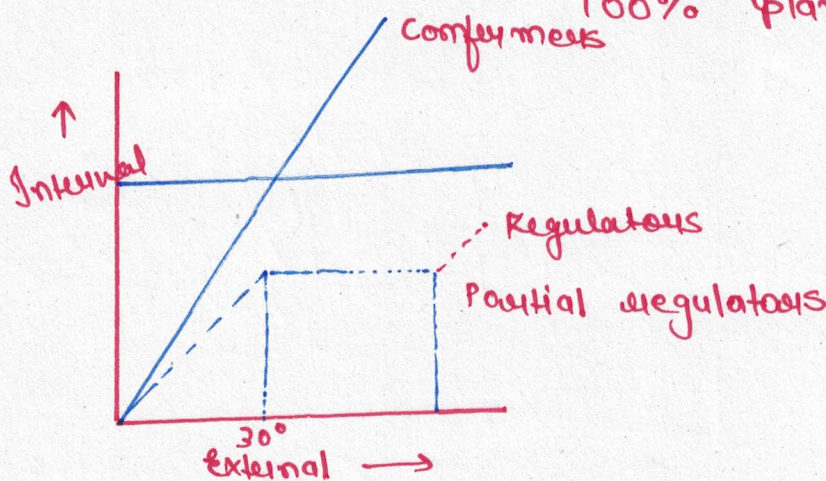 100%
Conformers
Internal
Regulators
Partial regulators
30°
External